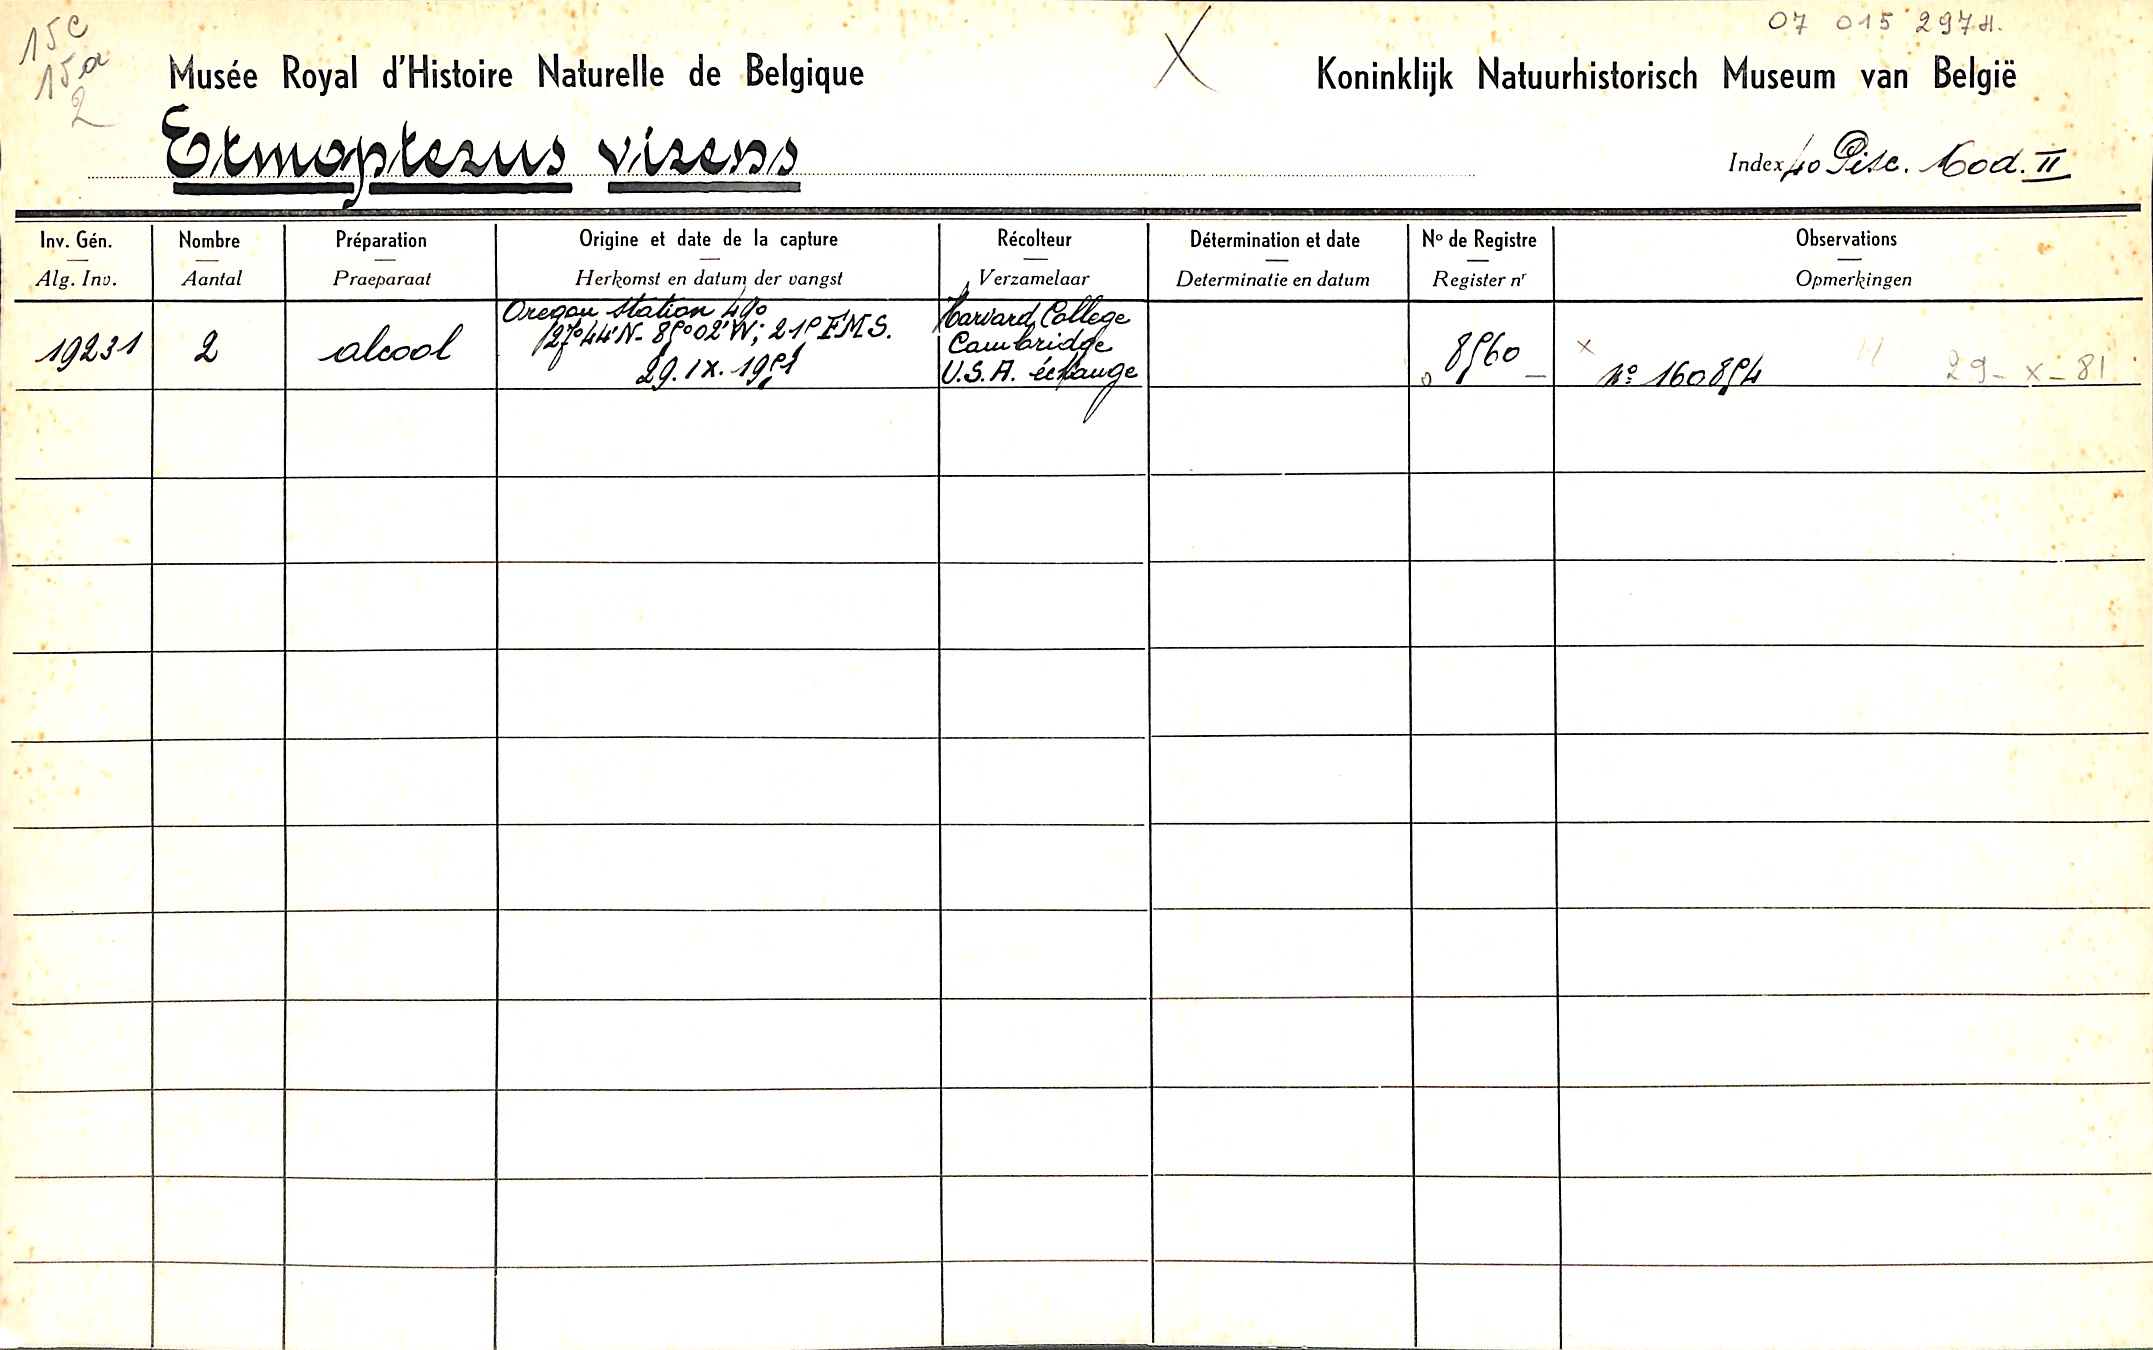 15c
15a
2
07 015 297 H.
X
Musée Royal d'Histoire Naturelle de Belgique
Koninklijk Natuurhistorisch Museum van België
Etmopterus virens
Index 40 Pisc. Mod. II
Inv. Gén. Nombre Préparation Origine et date de la capture Récolteur Détermination et date No de Registre Observations
Alg. Inv. Aantal Praeparaat Herkomst en datum der vangst Verzamelaar Determinatie en datum Register nr Opmerkingen
Oregon Station
27°44'N- 85°02'W; 210 FMS.
29. IX. 1951
Harvard College
Cambridge
U.S.A. échange
19231 2 alcool 8560
x
No 160854 29-X-81